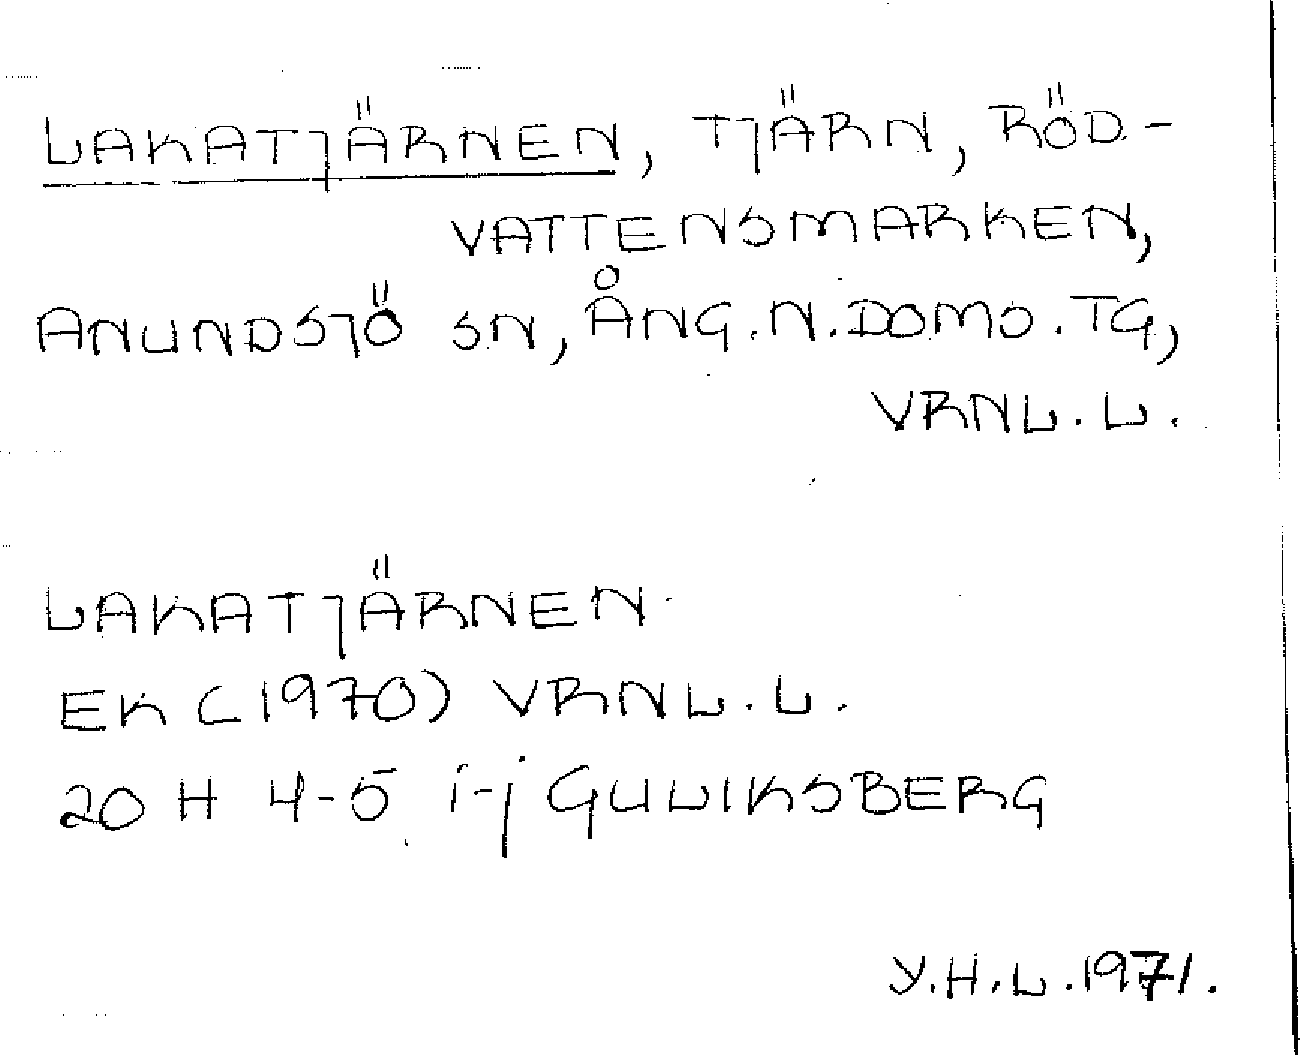 LAKATJÄRNEN, TJÄRN, RÖD-
VATTENSMARKEN,
ANUNDSJÖ SN, ÅNG. N. DOMS. TG,
VRNL. L.
LAKATJÄRNEN
EK (1970) VRNL. L.
20 H 4-5 i-j GULLVIKSBERG
Y.H.L. 1971.